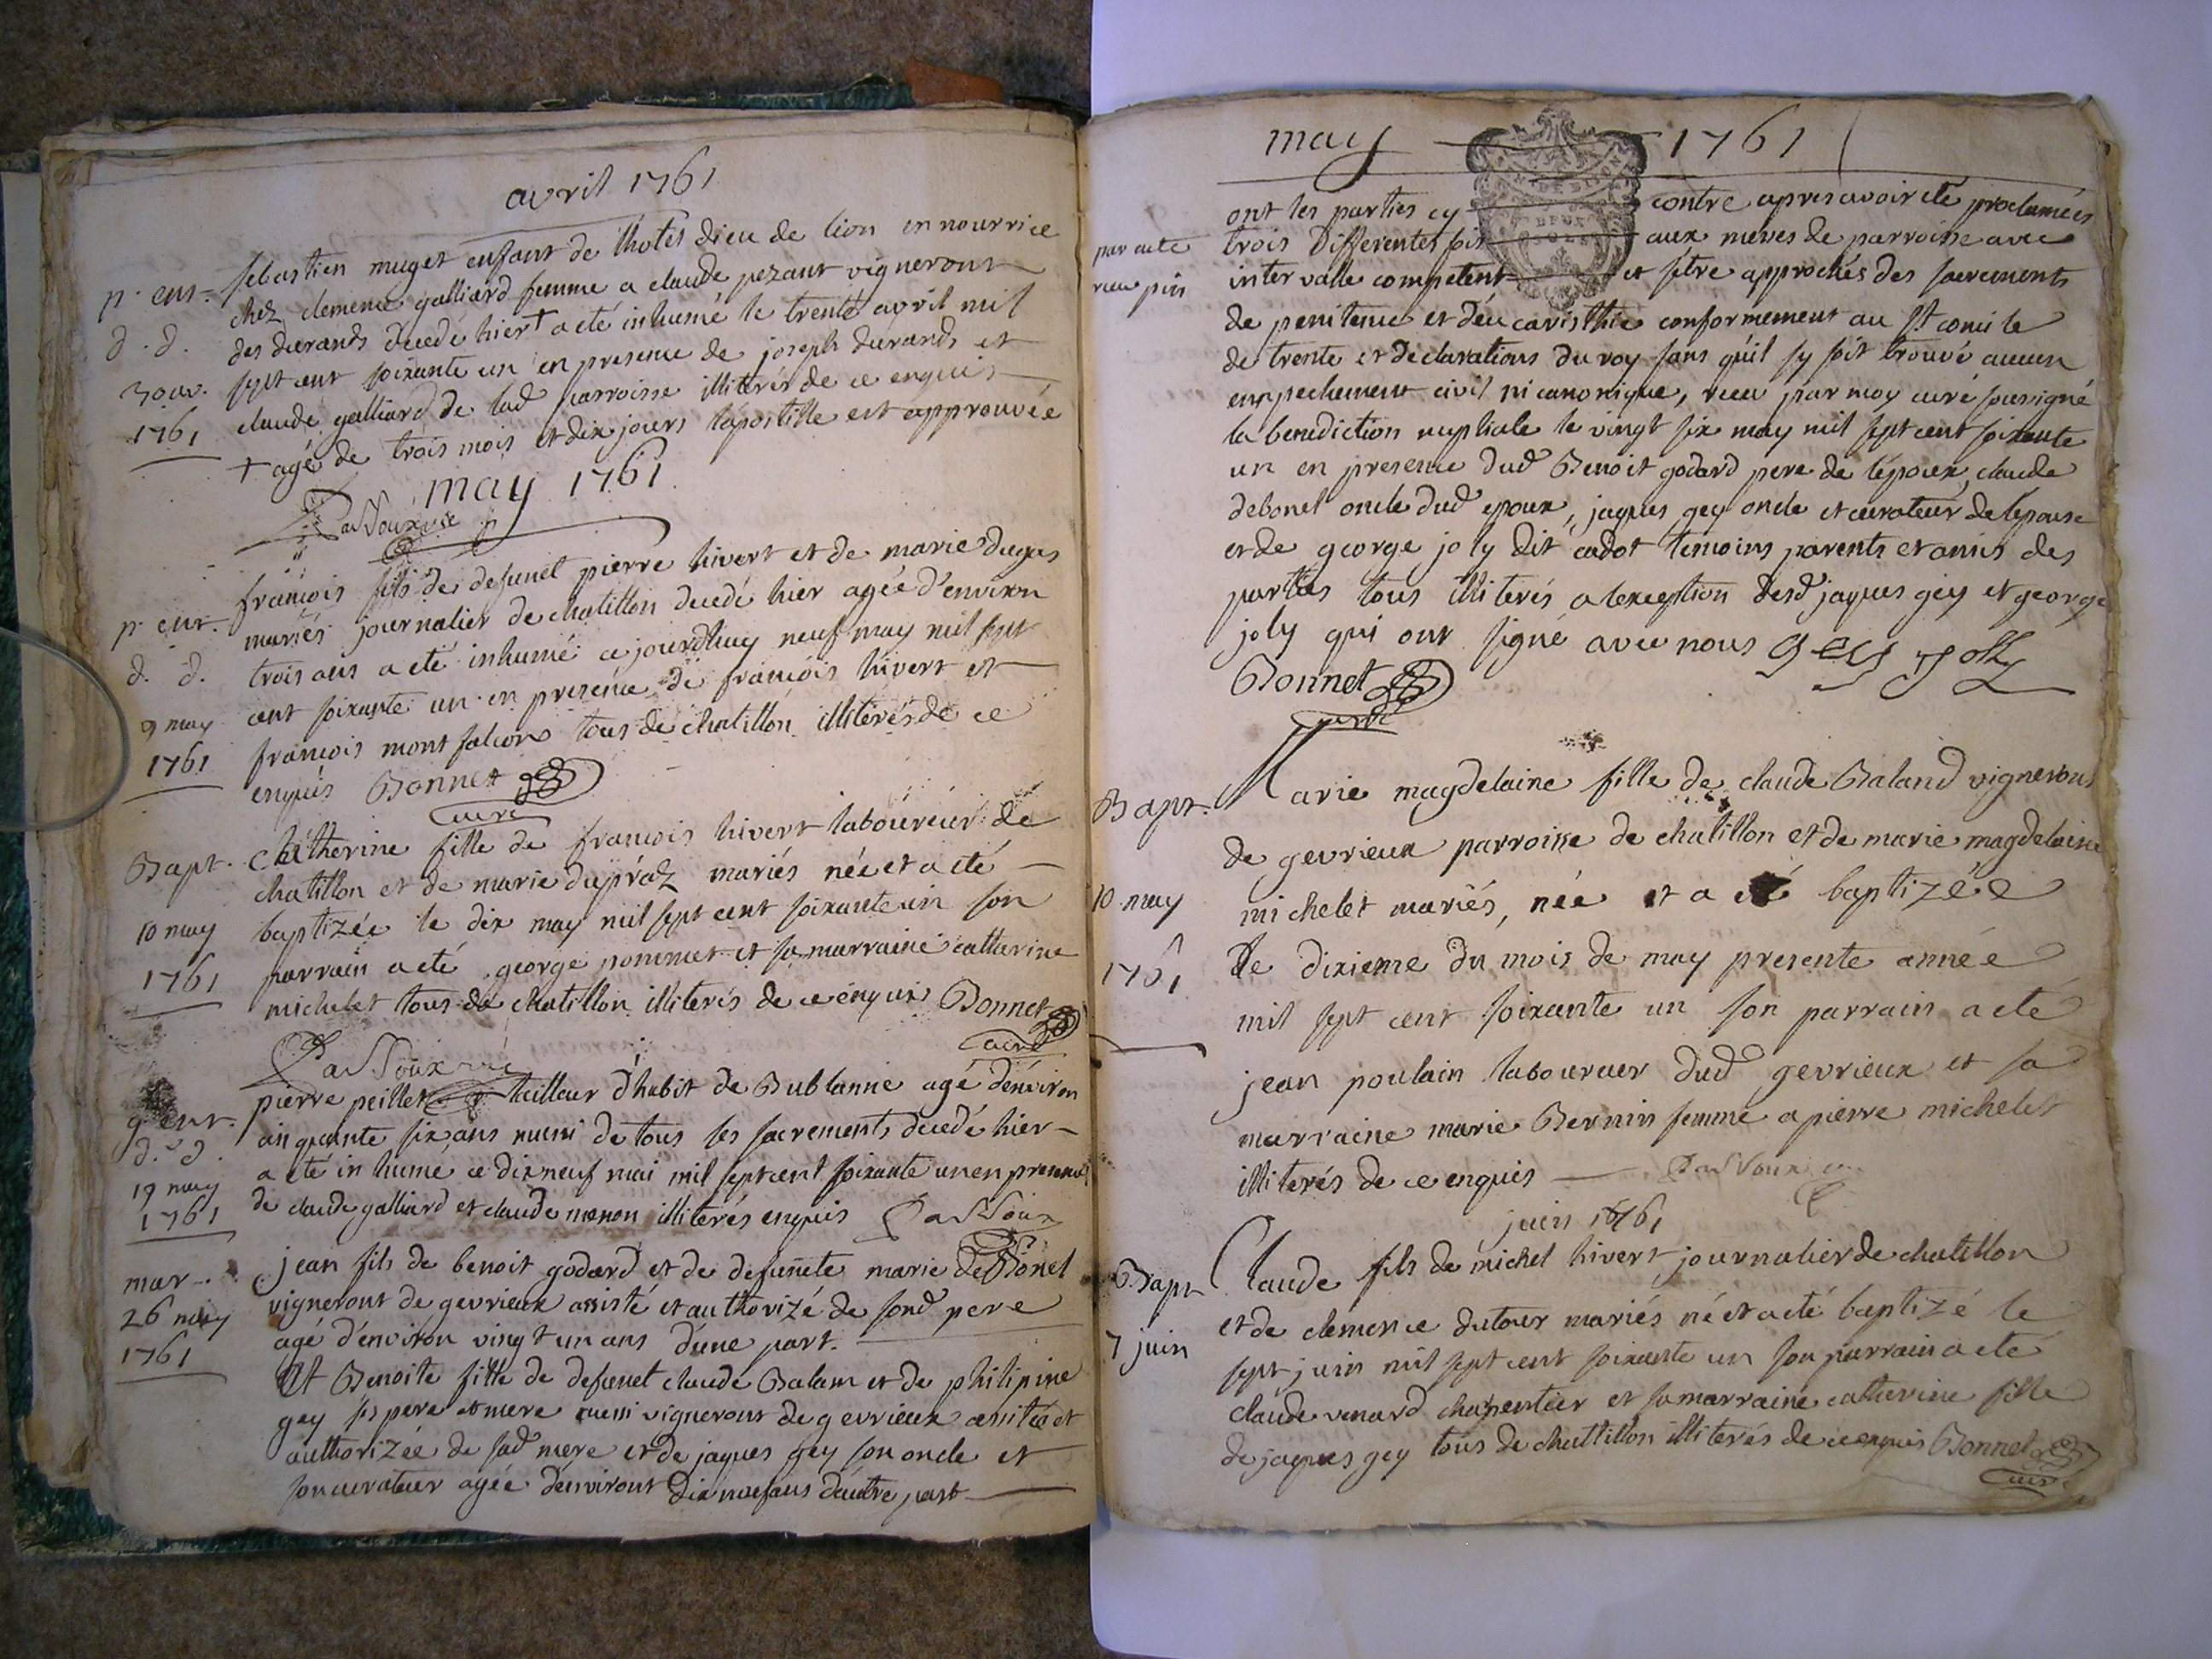 avril 1761
p. enr.
d. d.
30 av.
1761
sebastien muget enfant de lhotel dieu de lion en nourrice
chez clemence galliard femme a claude pezant vigneront
des durands decedé hier † a eté inhumé le trente avril mil
sept cent soixante un en presence de joseph durands et
claude galliard de lad parroisse illiterés de ce enquis
† agé de trois mois et dix jours lapostille est approuvée
may 1761
p. enr.
d. d.
9 may
1761
francois fils de defunct pierre hivert et de marie dugas
mariés journalier de chatillon decedé hier agée d'environ
trois ans a eté inhumé ce jourdhuy neuf may mil sept
cent soixante un en presence de francois hivert et
francois montfalcon tous de chatillon illiterés de ce
enquis Bonnet
curé
Bapt.
10 may
1761
Catherine fille de francois hivert laboureur de
chatillon et de marie dupráz mariés née et a eté
baptizée le dix may mil sept cent soixante un son
parrain a eté george pommet et sa marraine catherine
michelet tous de chatillon illiterés de ce enquis Bonnet
curé
g. enr.
d. d.
19 may
1761
pierre peillet tailleur d'habit de Bublanne agé d'environ
cinquante six ans muni de tous ses sacrements decedé hier
a eté inhumé ce dixneuf mai mil sept cent soixante un en presence
de claude galliard et claude menon illiterés enquis
mar.
26 may
1761
jean fils de benoit godard et de defuncte marie de Bonel
vigneront de gevrieux assisté et authorizé de sond pere
agé d'environ vingt un ans d'une part.
Et Benoite fille de defunct claude Balam et de philipine
gey ses pere et mere aussi vigneront de gevrieux assitée et
authorizée de sad mere et de jaques gey son oncle et
son curateur agée denviront dix neuf ans d'autre part
may 1761
par acte
recu pin
ont les parties cy contre apres avoir eté proclamées
trois differentes fois aux messes de parroisse avec
intervalle competent et s'etre approchés des sacrements
de penitence et d'eucaristhie conformement au St concile
de trente et declarations du roy sans quil sy soit trouvé aucun
empechement civil ni canonique, recu par moy curé soussigné
la benediction nuptiale le vingt six may mil sept cent soixante
un en presence dud Benoit godard pere de lépoux, claude
debonel oncle dud epoux, jaques gey oncle et curateur de lepouse
et de george joly dit cadot temoins parents et amis des
parties tous illiterés a lexception desd jaques gey et george
joly qui ont signé avec nous gey joly
Bonnet
curé
Bapt.
10 may
1761
Marie magdelaine fille de claude Baland vigneront
de gevrieux parroisse de chatillon et de marie magdelaine
michelet mariés, née et a eté baptizée
le dixieme du mois de may presente année
mil sept cent soixante un son parrain a eté
jean poulain laboureur dud gevrieux et sa
marraine marie Bernin femme a pierre michelet
illiterés de ce enquis
juin 1761
Bapt
7 juin
Claude fils de michel hivert journalier de chatillon
et de clemence dutour mariés né et a eté baptizé le
sept juin mil sept cent soixante un son parrain a eté
claude venard charpentier et sa marraine catherine fille
de jaques gey tous de chattillon illiterés de ce enquis Bonnet
curé